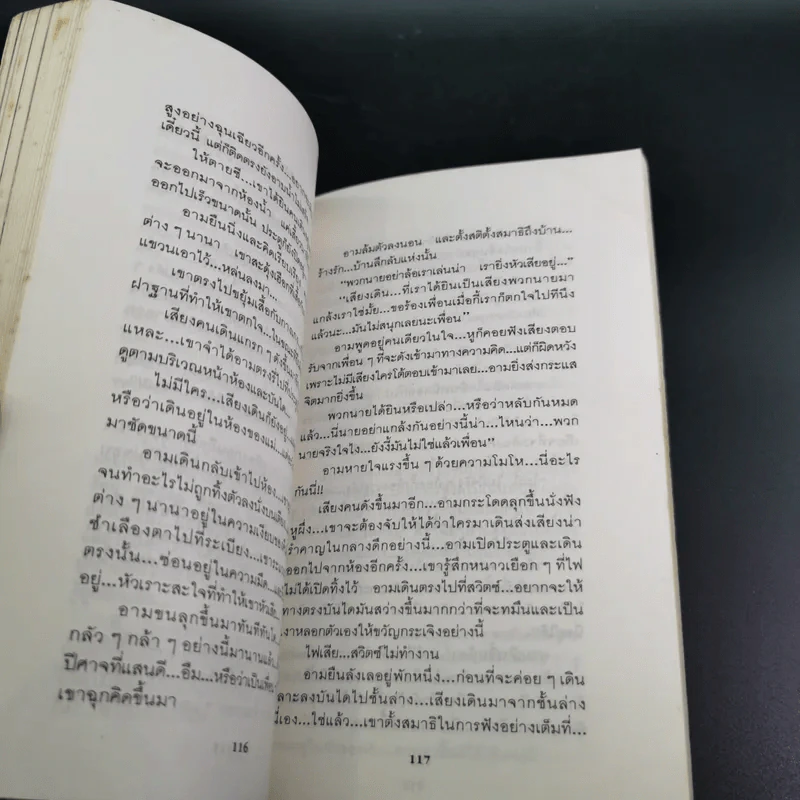 สูงอย่างฉุนเฉียวอีกครั้ง...
เดี๋ยวนี้ แต่ก็ติดตรงยังอาบน้ำไม่
ให้ตายซี...เขาได้ยินคน
จะออกมาจากห้องน้ำ แต่เสียง
ออกไปเร็วขนาดนั้น ประตูก็ยัง
อามยืนนิ่งและคิดเรียบ
ต่าง ๆ นานา เขาสะดุ้งเฮือก
แขวนเอาไว้...หล่นลงมา...
เขาตรงไปขยุ้มเสื้อกับกาง
ฝาฐานที่ทำให้เขาตกใจ...ในขณะ
เสียงคนเดินแกรก ๆ ดังขึ้น
แหละ...เขาจำได้อามตรงรี่ไปที่
ดูตามบริเวณหน้าห้องและบันได
ไม่มีใคร...เสียงเดินก็ยังอยู่
หรือว่าเดินอยู่ในห้องของแม่...
มาชัดขนาดนี้
อามเดินกลับเข้าไปห้อง...
จนทำอะไรไม่ถูกทิ้งตัวลงนั่งบนเตียง
ต่าง ๆ นานาอยู่ในความเงียบของ
ชำเลืองตาไปที่ระเบียง...เขาจะ
ตรงนั้น...ซ่อนอยู่ในความมืด...
อยู่...หัวเราะสะใจที่ทำให้เขาหัว
อามขนลุกขึ้นมาทันทีทันใด...
กลัว ๆ กล้า ๆ อย่างนี้มานานแล้ว
ปีศาจที่แสนดี...อืม...หรือว่าเป็นเพื่อน
เขาฉุกคิดขึ้นมา
116
อามล้มตัวลงนอน และตั้งสติตั้งสมาธิถึงบ้าน...
ร้างรัก...บ้านลึกลับแห่งนั้น
"พวกนายอย่าล้อเราเล่นน่า เรายิ่งหัวเสียอยู่..."
"เสียงเดิน...ที่เราได้ยินเป็นเสียงพวกนายมา
แกล้งเราใช่มั้ย...ขอร้องเพื่อนเมื่อกี้เราก็ตกใจไปทีนึง
แล้วนะ...มันไม่สนุกเลยนะเพื่อน"
อามพูดอยู่คนเดียวในใจ...หูก็คอยฟังเสียงตอบ
รับจากเพื่อน ๆ ที่จะดังเข้ามาทางความคิด...แต่ก็ผิดหวัง
เพราะไม่มีเสียงใครโต้ตอบเข้ามาเลย...อามยิ่งส่งกระแส
จิตมากยิ่งขึ้น
พวกนายได้ยินหรือเปล่า...หรือว่าหลับกันหมด
แล้ว...นี่นายอย่าแกล้งกันอย่างนี้น่า...ไหนว่า...พวก
นายจริงใจไง...ยังงี้มันไม่ใช่แล้วเพื่อน"
อามหายใจแรงขึ้น ๆ ด้วยความโมโห...นี่อะไร
กันนี่!!
เสียงคนดังขึ้นมาอีก...อามกระโดดลุกขึ้นนั่งฟัง
หูผึ่ง...เขาจะต้องจับให้ได้ว่าใครมาเดินส่งเสียงน่า
รำคาญในกลางดึกอย่างนี้...อามเปิดประตูและเดิน
ออกไปจากห้องอีกครั้ง...เขารู้สึกหนาวเยือก ๆ ที่ไฟ
ไม่ได้เปิดทิ้งไว้ อามเดินตรงไปที่สวิตซ์...อยากจะให้
ทางตรงบันไดมันสว่างขึ้นมากกว่าที่จะทมึนและเป็น
เงาหลอกตัวเองให้ขวัญกระเจิงอย่างนี้
ไฟเสีย...สวิตซ์ไม่ทำงาน
อามยืนลังเลอยู่พักหนึ่ง...ก่อนที่จะค่อย ๆ เดิน
เลาะลงบันไดไปชั้นล่าง...เสียงเดินมาจากชั้นล่าง
นี่เอง...ใช่แล้ว...เขาตั้งสมาธิในการฟังอย่างเต็มที่...
117